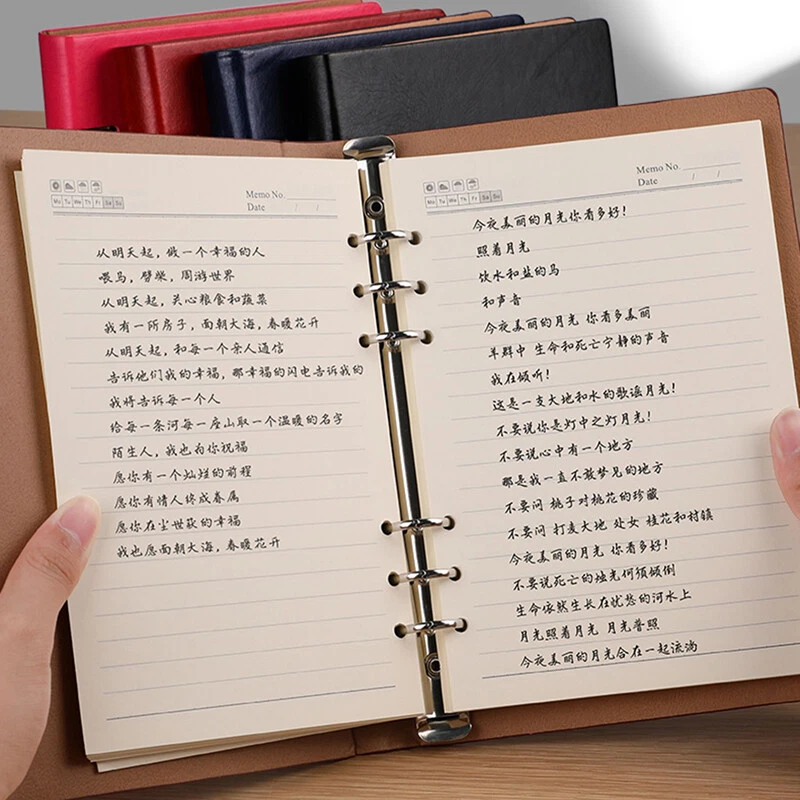 Memo No.
Mo Tu We Th Fr Sa Su
Date / /
从明天起，做一个幸福的人
喂马，劈柴，周游世界
从明天起，关心粮食和蔬菜
我有一所房子，面朝大海，春暖花开
从明天起，和每一个亲人通信
告诉他们我的幸福，那幸福的闪电告诉我的
我将告诉每一个人
给每一条河每一座山取一个温暖的名字
陌生人，我也为你祝福
愿你有一个灿烂的前程
愿你有情人终成眷属
愿你在尘世获的幸福
我也愿面朝大海，春暖花开
Memo No.
Mo Tu We Th Fr Sa Su
Date / /
今夜美丽的月光你看多好！
照着月光
饮水和盐的马
和声音
今夜美丽的月光 你看多美丽
羊群中 生命和死亡宁静的声音
我在倾听！
这是一支大地和水的歌谣月光！
不要说你是灯中之灯月光！
不要说心中有一个地方
那是我一直不敢梦见的地方
不要问 桃子对桃花的珍藏
不要问 打麦大地 处女 桂花和村镇
今夜美丽的月光 你看多好！
不要说死亡的烛光何须倾倒
生命依然生长在忧愁的河水上
月光照着月光 月光普照
今夜美丽的月光合在一起流淌